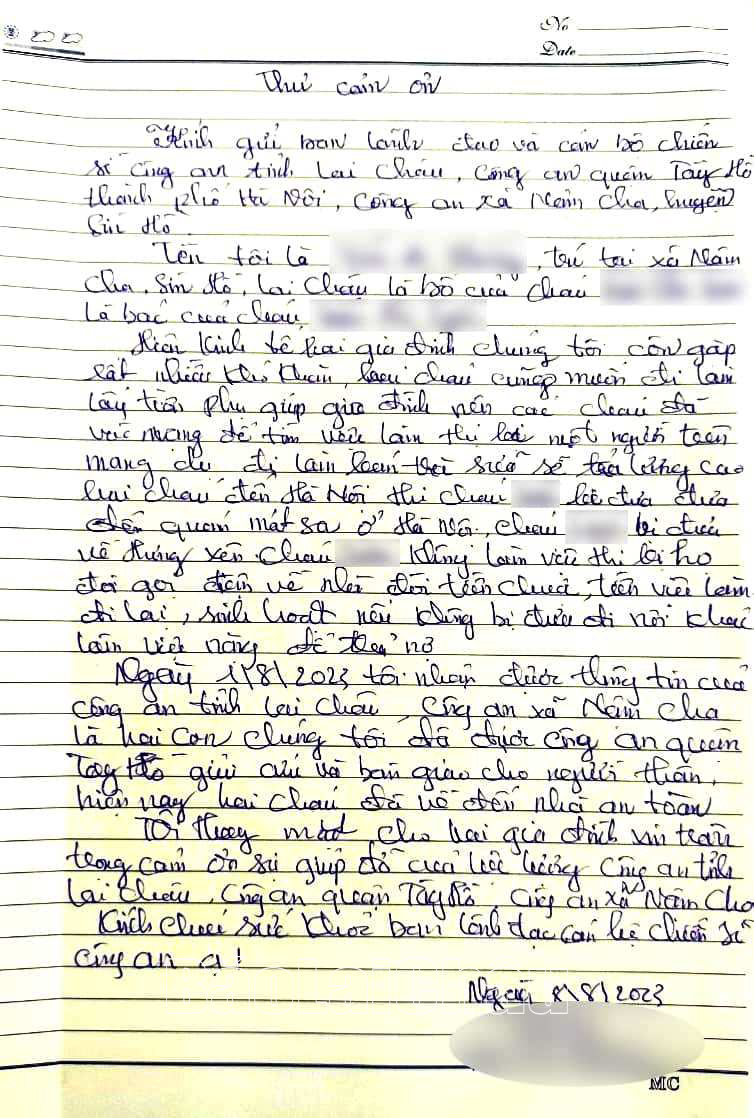 No
Date
Thư cảm ơn
Kính gửi ban lãnh đạo và cán bộ chiến
sĩ công an tỉnh Lai Châu, Công an quận Tây Hồ
thành phố Hà Nội, Công an xã Nậm Cha, huyện
Sìn Hồ.
Tên tôi là , trú tại xã Nậm
Cha, Sìn Hồ, Lai Châu là bố của cháu
Là bác của cháu,
Hiện kinh tế hai gia đình chúng tôi còn gặp
rất nhiều khó khăn, hai cháu cũng muốn đi làm
lấy tiền phụ giúp gia đình nên các cháu đã
xuống để tìm việc làm thì bị một người trên
mạng dụ đi làm sẽ trả lương cao
hai cháu đến Hà Nội thì cháu bị đưa
đến quán mát sa ở Hà Nội, cháu bị đưa
về Hưng Yên cháu không làm việc thì bị họ
đòi gọi điện về nhà đòi tiền chuộc, tiền việc làm
đi lại, sinh hoạt nếu không bị đưa đi nơi khác
làm việc nặng để trả nợ
Ngày 1/8/2023 tôi nhận được thông tin của
công an tỉnh Lai Châu, Công an xã Nậm Cha
là hai con chúng tôi đã được công an quận
Tây Hồ giải cứu và bàn giao cho người thân,
hiện nay hai cháu đã về đến nhà an toàn
Tôi thay mặt cho hai gia đình xin trân
trọng cảm ơn sự giúp đỡ của lực lượng Công an tỉnh
Lai Châu, Công an quận Tây Hồ, Công an xã Nậm Cha
Kính chúc sức khoẻ ban lãnh đạo cán bộ chiến sĩ
công an ạ!
Ngày 8/8/2023
MC